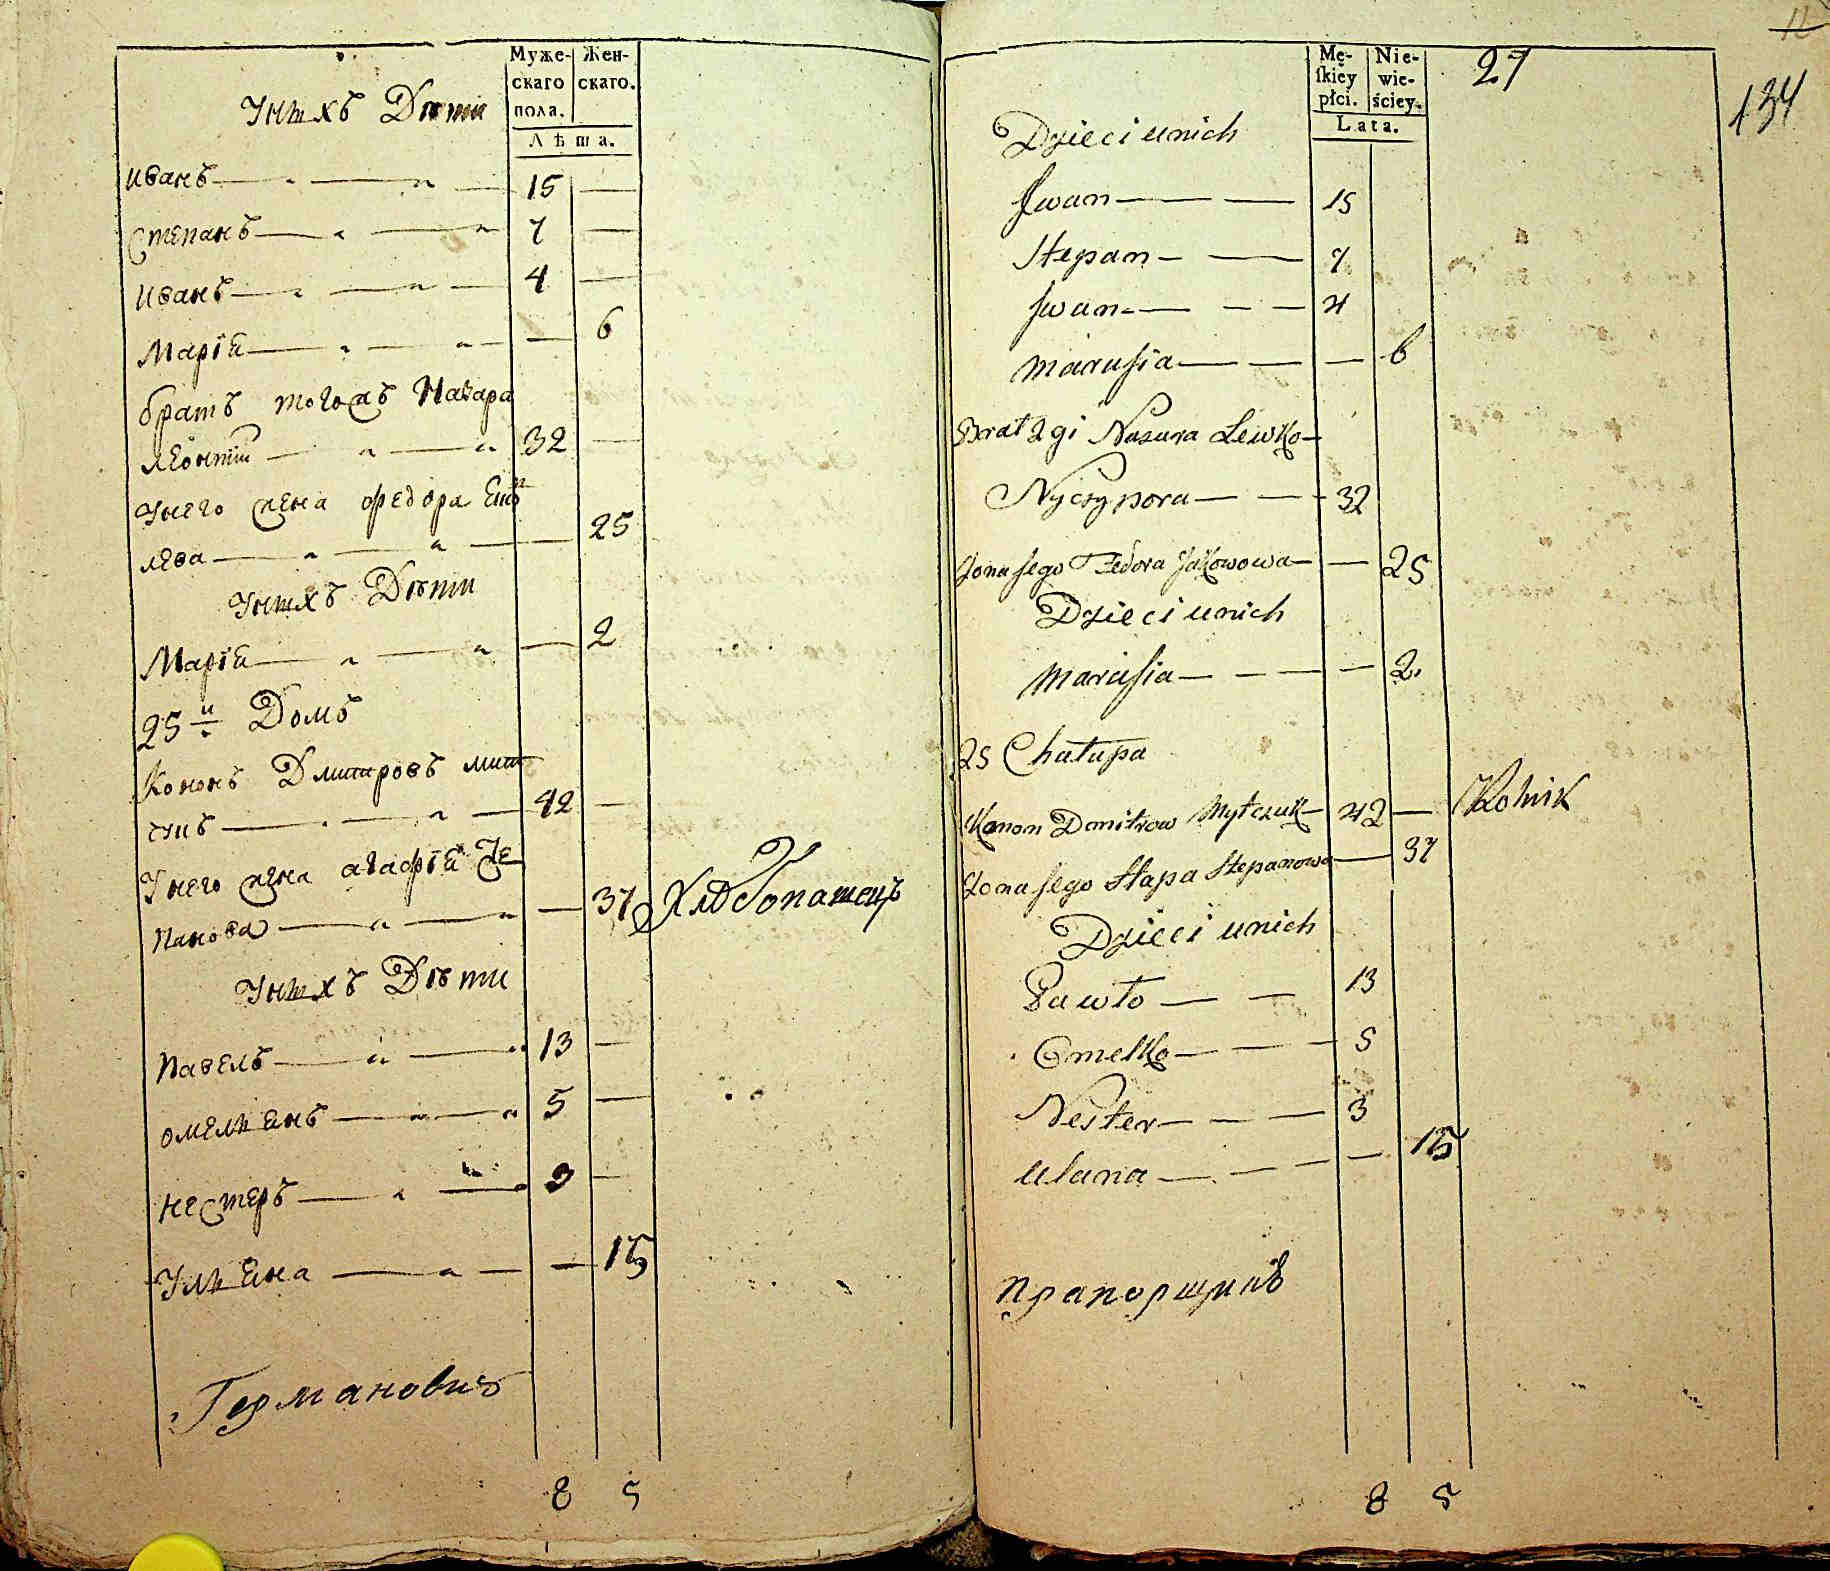 Муже-
скаго
пола.
Жен-
скаго.
Лѣта.
У нихъ Дѣти
Иванъ 15
Степанъ 7
Иванъ 4
Марїя 6
братъ тогожъ Назара
Леонтій 32
У него жена федора
лева 25
У нихъ Дѣти
Марїя 2
25й Домъ
Кононъ Дмитровъ мит
чукъ 42
У него жена агафїя Сте
панова 37 Хлѣбопашецъ
У нихъ Дѣти
Павелъ 13
омелянъ 5
нестеръ 3
Улияна 15
Германовичъ
8 5
Mę-
skiey
płci.
Nie-
wie-
ściey.
Lata.
27
12
134
Dzieci unich
Jwan 15
Stepan 7
Jwan 4
Marusia 6
Brat 2gi Nazura Lewko
Nyczypora 32
Żona jego Fedora Jakowowa 25
Dzieci unich
Marusia 2.
25 Chałupa
Konon Dmitrow Mytczuk 42 Rolnik
Żona jego Hapa Stepanowa 37
Dzieci unich
Pawło 13
Omelko 5
Nester 3
Ulana 15
прапорщикъ
8 5